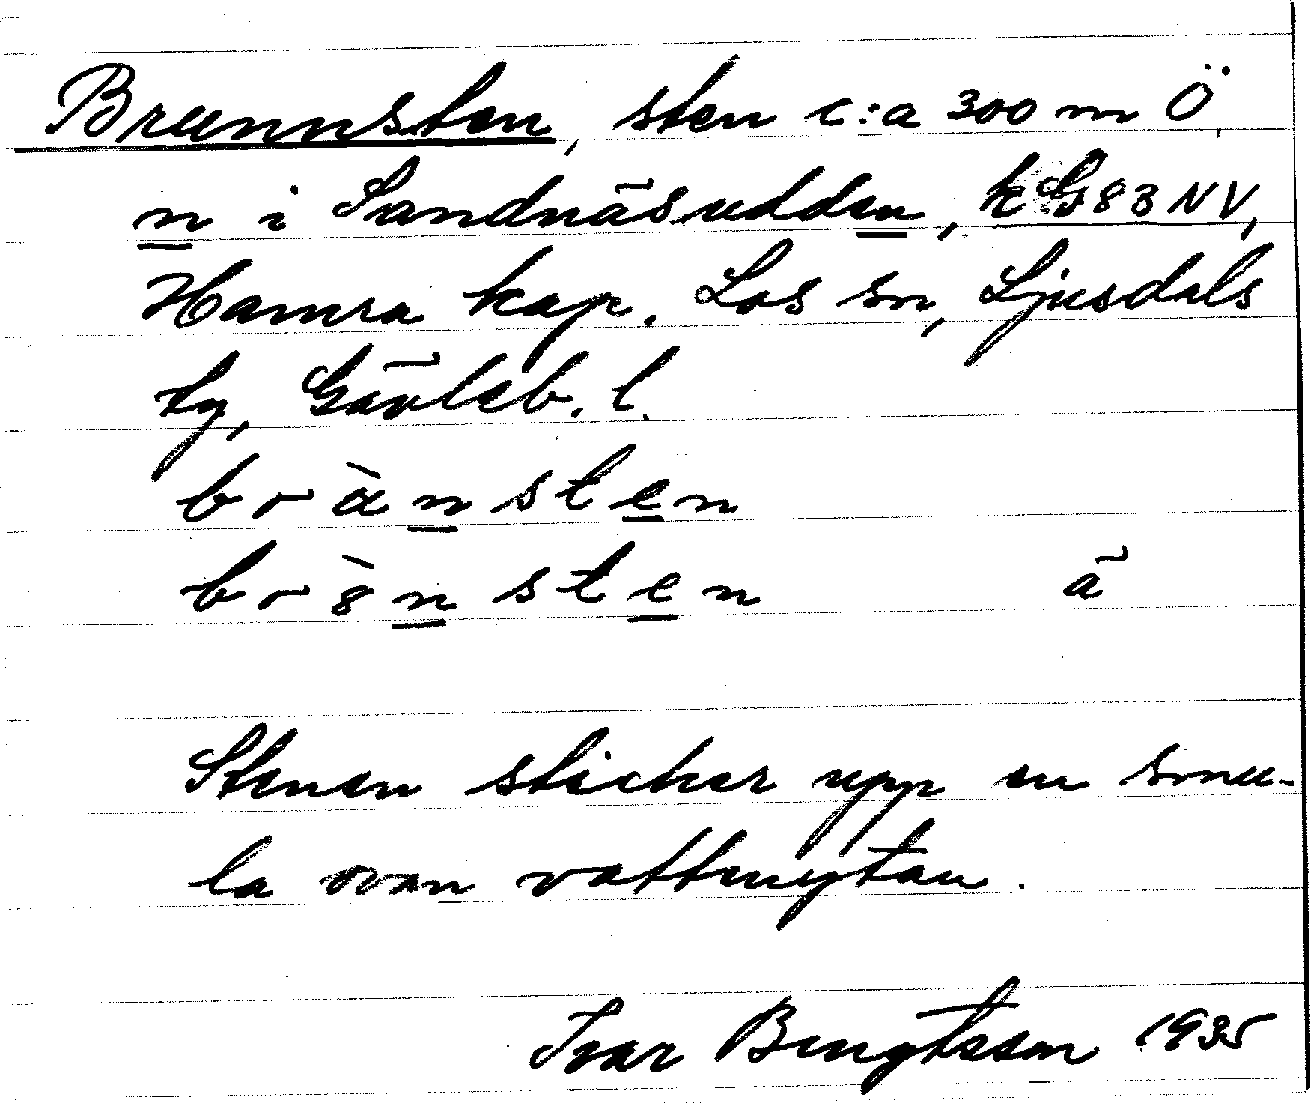 Brunnsten, sten c:a 300 m Ö,
n i Sandnäsudden, k G 83 NV,
Hamra kap. Los sn, Ljusdals
tg, Gävleb. l.
br ànsten
br 8̀nsten ã
Stenen sticker upp en smu-
la ovan vattenytan.
Ivar Bengtsson 1935